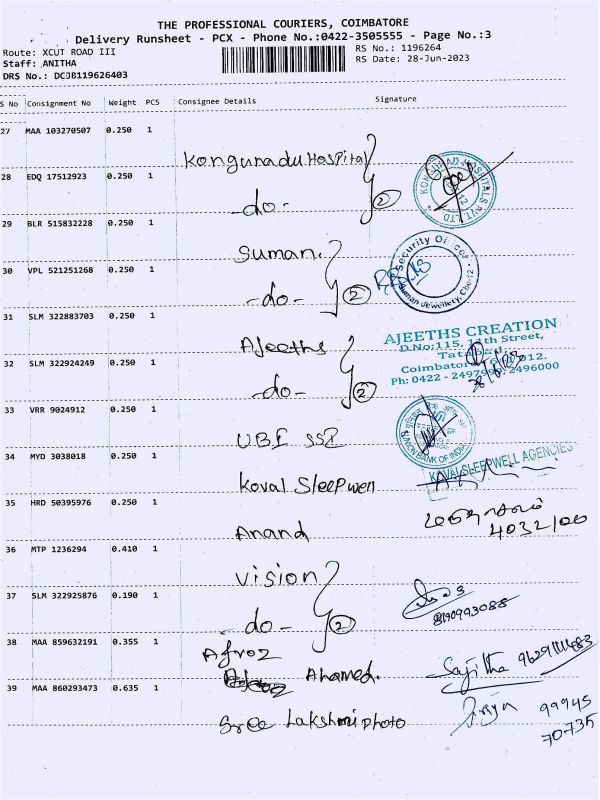 THE PROFESSIONAL COURIERS, COIMBATORE
Delivery Runsheet - PCX - Phone No.:0422-3505555 - Page No.:3
Route: XCUT ROAD III
RS No.: 1196264
Staff: ANITHA
RS Date: 28-Jun-2023
DRS No.: DCJB119626403
S No Consignment No Weight PCS Consignee Details Signature
27 MAA 103270507 0.250 1
Kongunadu Hospital
28 EDQ 17512923 0.250 1
- do - 2
29 BLR 515832228 0.250 1
Suman.
Security Officer
30 VPL 521251268 0.250 1
- do - 2
31 SLM 322883703 0.250 1
Ajeeths
AJEETHS CREATION
D.No:115, 11th Street,
32 SLM 322924249 0.250 1
- do - 2
Ph: 0422 - 2497999, 2496000
33 VRR 9024912 0.250 1
UBI SSI
UNION BANK OF INDIA
34 MYD 3038018 0.250 1
Koval Sleepwell
KOVAI SLEEPWELL AGENCIES
35 HRD 50395976 0.250 1
Anand
4032/00
36 MTP 1236294 0.410 1
Vision
37 SLM 322925876 0.190 1
- do - 2
8190993088
38 MAA 859632191 0.355 1
Afroz
Ahamed.
Sajitha
39 MAA 860293473 0.635 1
Sree Lakshmi photo
Priya 99945
70735